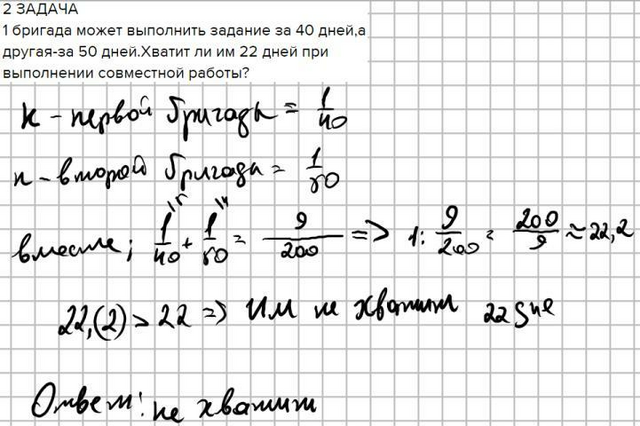 2 ЗАДАЧА
1 бригада может выполнить задание за 40 дней,а
другая-за 50 дней.Хватит ли им 22 дней при
выполнении совместной работы?
к - первой бригады = 1/40
п - второй бригады = 1/50
вместе; 1/40 + 1/50 = 9/200 => 1: 9/200 = 200/9 ≈ 22,2
22,(2) > 22 => Им не хватит 22 дне
Ответ: не хватит